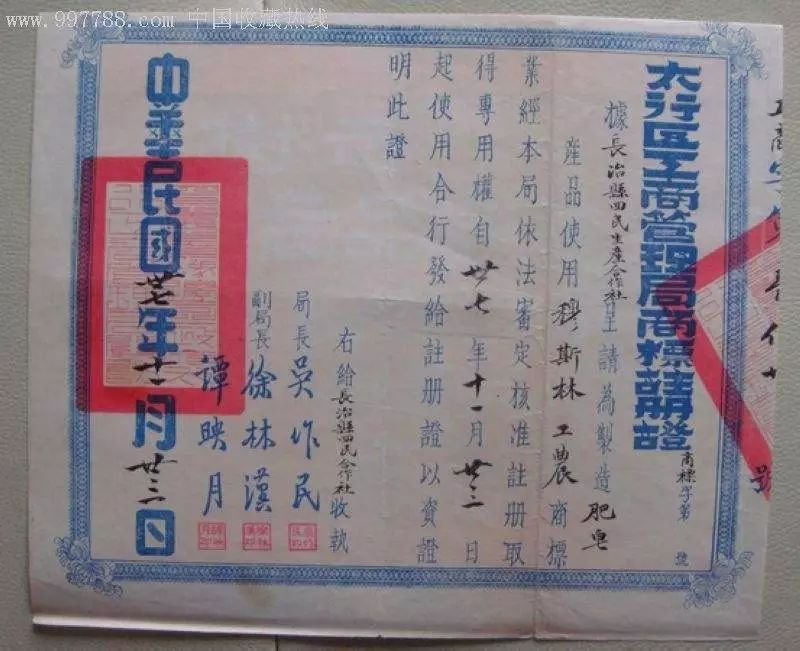 www.997788.com 中国收藏热线
太行區工商管理局商標註冊證
商標字第 號
據長治縣四民生產合作社呈請為製造肥皂
產品使用穆斯林工農商標
業經本局依法審定核准註册取
得專用權自卅七年十一月廿三日
起使用合行發給註册證以資證
明此證
右給長治縣四民合作社收執
局長吳作民
副局長徐林漢
譚映月
中華民國卅七年十一月廿三日
號